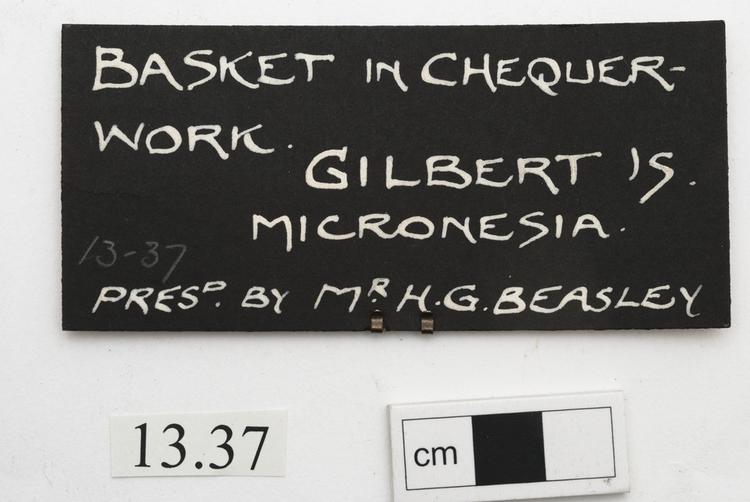 BASKET IN CHEQUER-
WORK.
GILBERT IS.
MICRONESIA.
13-37
PRESD. BY MR. H.G. BEASLEY
13.37
cm